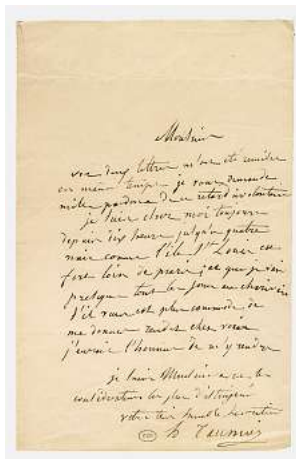 Monsieur
vos deux lettres m'ont été remises
en même temps je vous demande
mille pardons de ce retard involontaire
je suis chez moi toujours
depuis dix heures jusqu'à quatre
mais comme l'île St Louis est
fort loin de et que je vais
presque tous les jours au
s'il vous est plus commode de
me donner rendez chez vous
j'aurai l'honneur de m'y rendre
je suis Monsieur avec la
considération la plus distinguée
votre très humble serviteur
h Daumier